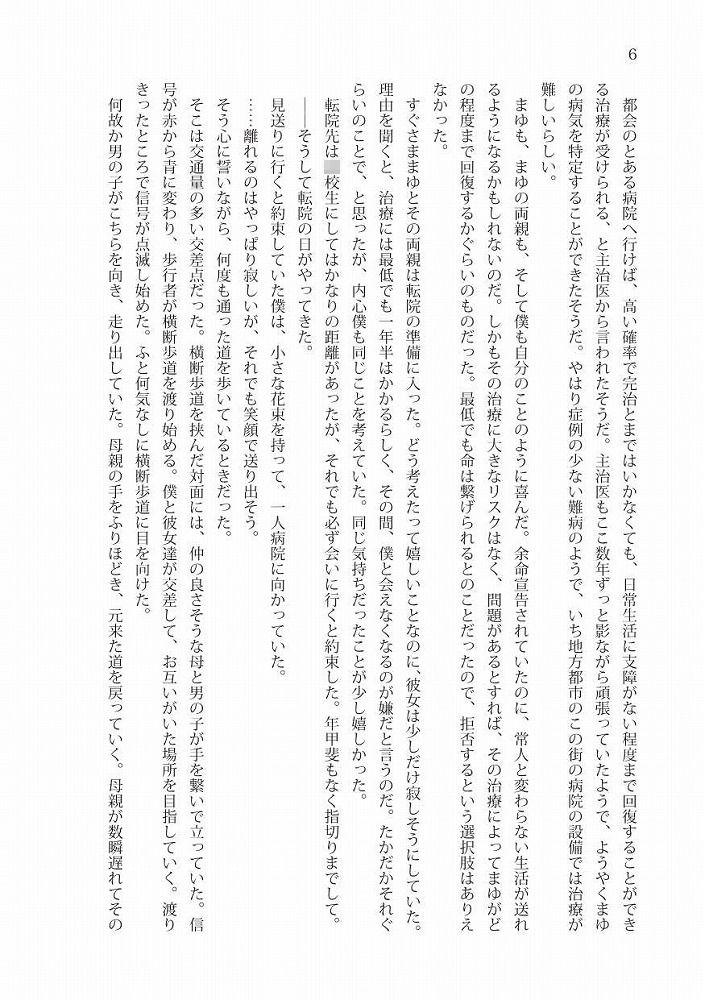 6
都会のとある病院へ行けば、高い確率で完治とまではいかなくても、日常生活に支障がない程度まで回復することができ
る治療が受けられる、と主治医から言われたそうだ。主治医もここ数年ずっと影ながら頑張っていたようで、ようやくまゆ
の病気を特定することができたそうだ。やはり症例の少ない難病のようで、いち地方都市のこの街の病院の設備では治療が
難しいらしい。
まゆも、まゆの両親も、そして僕も自分のことのように喜んだ。余命宣告されていたのに、常人と変わらない生活が送れ
るようになるかもしれないのだ。しかもその治療に大きなリスクはなく、問題があるとすれば、その治療によってまゆがど
の程度まで回復するかぐらいのものだった。最低でも命は繋げられるとのことだったので、拒否するという選択肢はありえ
なかった。
すぐさままゆとその両親は転院の準備に入った。どう考えたって嬉しいことなのに、彼女は少しだけ寂しそうにしていた。
理由を聞くと、治療には最低でも一年半はかかるらしく、その間、僕と会えなくなるのが嫌だと言うのだ。たかだかそれぐ
らいのことで、と思ったが、内心僕も同じことを考えていた。同じ気持ちだったことが少し嬉しかった。
転院先は校生にしてはかなりの距離があったが、それでも必ず会いに行くと約束した。年甲斐もなく指切りまでして。
――そうして転院の日がやってきた。
見送りに行くと約束していた僕は、小さな花束を持って、一人病院に向かっていた。
……離れるのはやっぱり寂しいが、それでも笑顔で送り出そう。
そう心に誓いながら、何度も通った道を歩いているときだった。
そこは交通量の多い交差点だった。横断歩道を挟んだ対面には、仲の良さそうな母と男の子が手を繋いで立っていた。信
号が赤から青に変わり、歩行者が横断歩道を渡り始める。僕と彼女達が交差して、お互いがいた場所を目指していく。渡り
きったところで信号が点滅し始めた。ふと何気なしに横断歩道に目を向けた。
何故か男の子がこちらを向き、走り出していた。母親の手をふりほどき、元来た道を戻っていく。母親が数瞬遅れてその